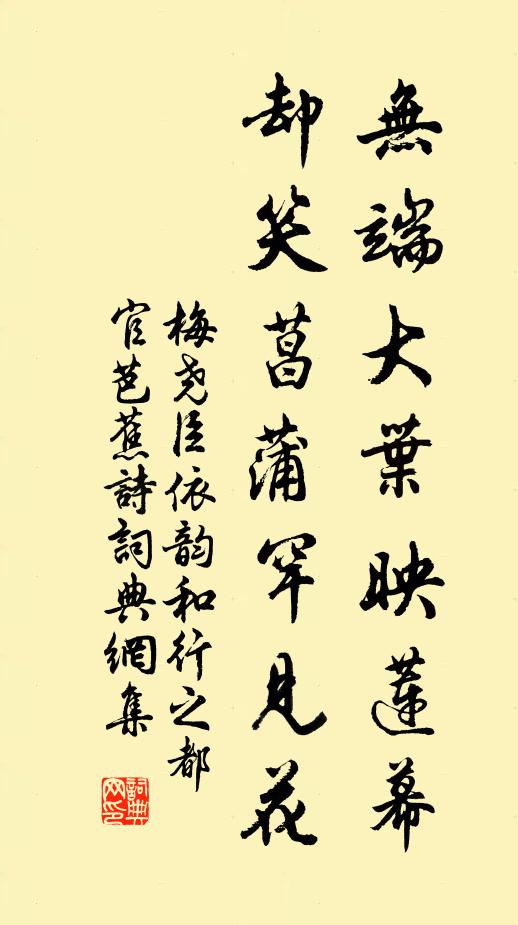 無端大葉映蓮幕
却笑菖蒲罕見花
梅尧臣依韵和行之都
官芭蕉詩詞典網集
詞典
网印